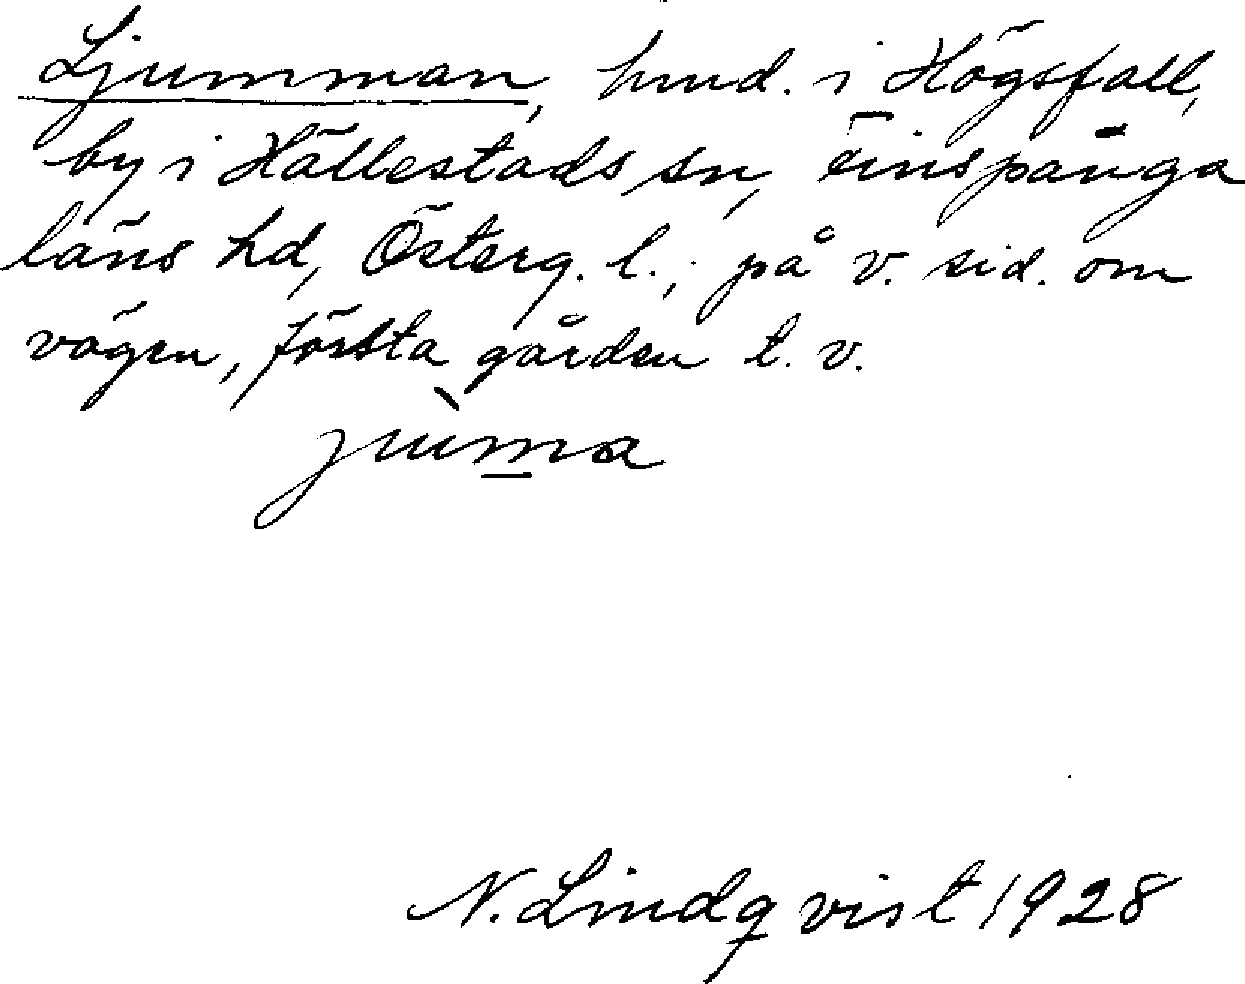 Ljumman, hmd. i Högsfall,
by i Hällestads sn, Finspånga
läns hd, Österg. l.; på v. sid. om
vägen, första gården t. v.
jùma
N. Lindqvist 1928